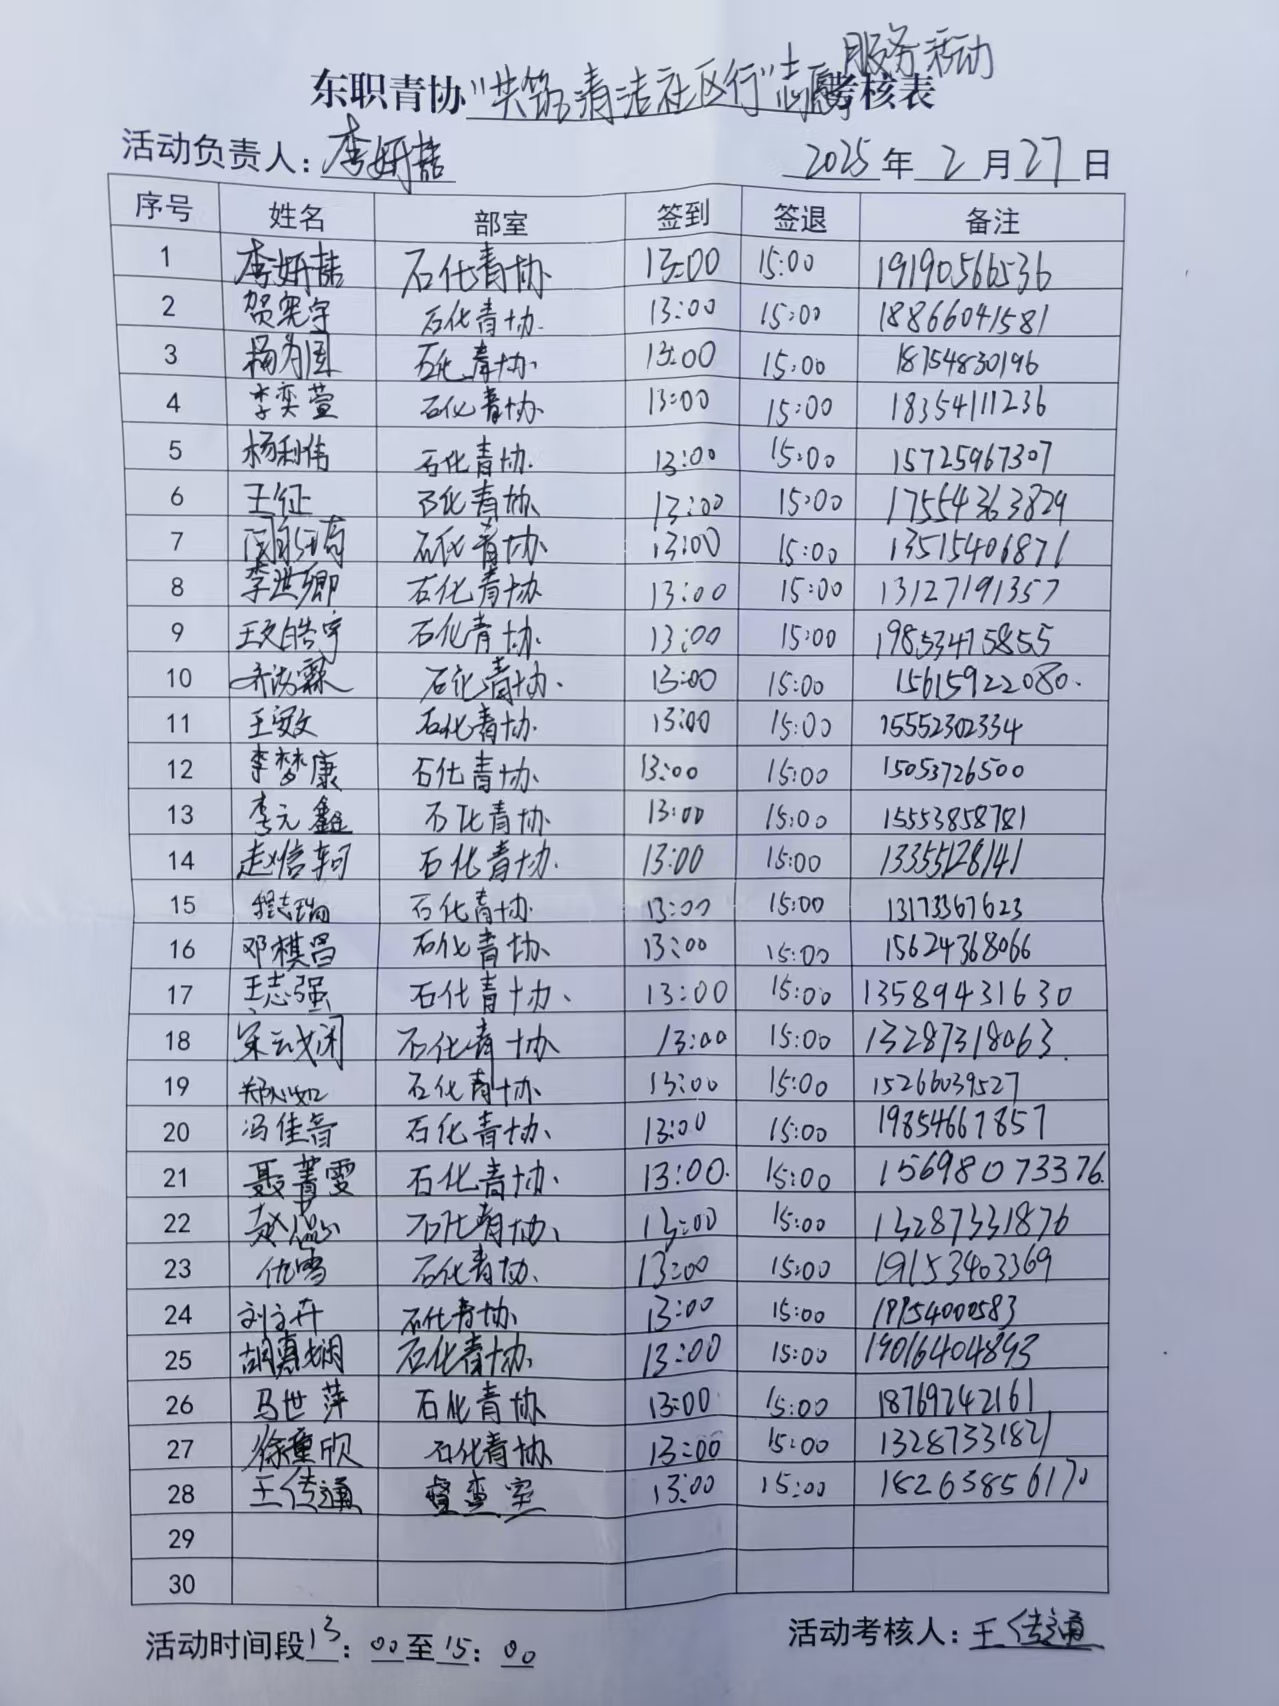 服务活动
东职青协"共筑清洁社区行"志愿考核表
活动负责人：李妍喆 2025年2月27日
序号 姓名 部室 签到 签退 备注
1 李妍喆 石化青协 13:00 15:00 19190566536
2 贺宪宇 石化青协 13:00 15:00 18866041581
3 杨为国 石化青协 13:00 15:00 18754830196
4 李奕萱 石化青协 13:00 15:00 18354111236
5 杨利伟 石化青协 13:00 15:00 15725967307
6 王征 石化青协 13:00 15:00 17554363829
7 石化青协 13:00 15:00 13515406871
8 李洪卿 石化青协 13:00 15:00 13127191357
9 王文皓宇 石化青协 13:00 15:00 19853475855
10 石化青协 13:00 15:00 15615922080
11 王 石化青协 13:00 15:00 15552302334
12 李梦康 石化青协 13:00 15:00 15053726500
13 李元鑫 石化青协 13:00 15:00 15553858781
14 赵信轲 石化青协 13:00 15:00 13355128141
15 程志瑞 石化青协 13:00 15:00 13173367623
16 邓棋昌 石化青协 13:00 15:00 15624368066
17 王志强 石化青协 13:00 15:00 13589431630
18 宋云娴 石化青协 13:00 15:00 13287318063
19 郑心如 石化青协 13:00 15:00 15266039527
20 冯佳音 石化青协 13:00 15:00 19854667857
21 聂菁雯 石化青协 13:00 15:00 15698073376
22 赵蕊 石化青协 13:00 15:00 13287331876
23 仇雪 石化青协 13:00 15:00 19153403369
24 刘文卉 石化青协 13:00 15:00 19954000583
25 胡嘉娴 石化青协 13:00 15:00 19016404893
26 马世萍 石化青协 13:00 15:00 18769242161
27 徐童欣 石化青协 13:00 15:00 13287331821
28 王传通 督查室 13:00 15:00 18263856170
29
30
活动时间段13：00至15：00 活动考核人：王传通